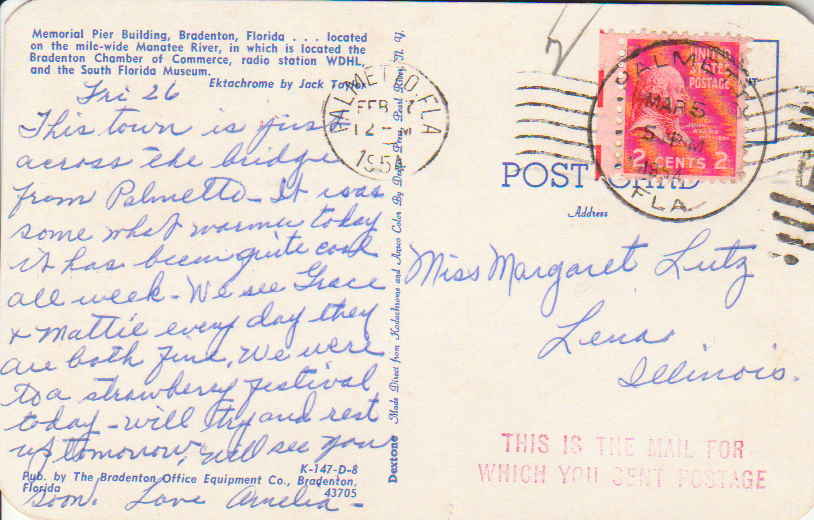 Memorial Pier Building, Bradenton, Florida . . . located
on the mile-wide Manatee River, in which is located the
Bradenton Chamber of Commerce, radio station WDHL,
and the South Florida Museum.
Ektachrome by Jack
Fri 26
This town is just
across the bridge
from Palmetto - It was
some what warmer today
it has been quite cool
all week - We see Grace
& Mattie every day they
are both fine. We were
to a strawberry festival
today - will try and rest
up tomorrow, will see you
soon. Love Amelia -
Pub. by The Bradenton Office Equipment Co., Bradenton,
Florida
K-147-D-8
43705
Dextone Made Direct from Kodachrome and Ansco Color By Dexter Press, Pearl River, N. Y.
PALMETTO, FLA
FEB
12 - M
1954
PALMETTO
MAR 5
5 - PM
1954
FLA.
UNITED
STATES
POSTAGE
2 CENTS 2
POST CARD
Address
Miss Margaret Lutz
Lena
Illinois.
THIS IS THE MAIL FOR
WHICH YOU SENT POSTAGE